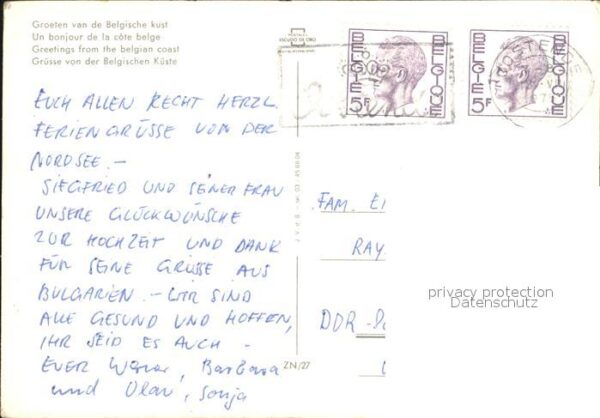 Groeten van de Belgische kust
Un bonjour de la côte belge
Greetings from the belgian coast
Grüsse von der Belgischen Küste
BELGIE 5F BELGIQUE
BELGIE 5F BELGIQUE
EUCH ALLEN RECHT HERZL.
FERIENGRÜSSE VON DER
NORDSEE. —
SIEGFRIED UND SEINER FRAU
UNSERE GLÜCKWÜNSCHE
ZUR HOCHZEIT UND DANK
FÜR SEINE GRÜSSE AUS
BULGARIEN. — WIR SIND
ALLE GESUND UND HOFFEN,
IHR SEID ES AUCH —
EUER Werner, Barbara
und Olav, Sonja
FAM. E
RAY
DDR
privacy protection
Datenschutz
ZN/27